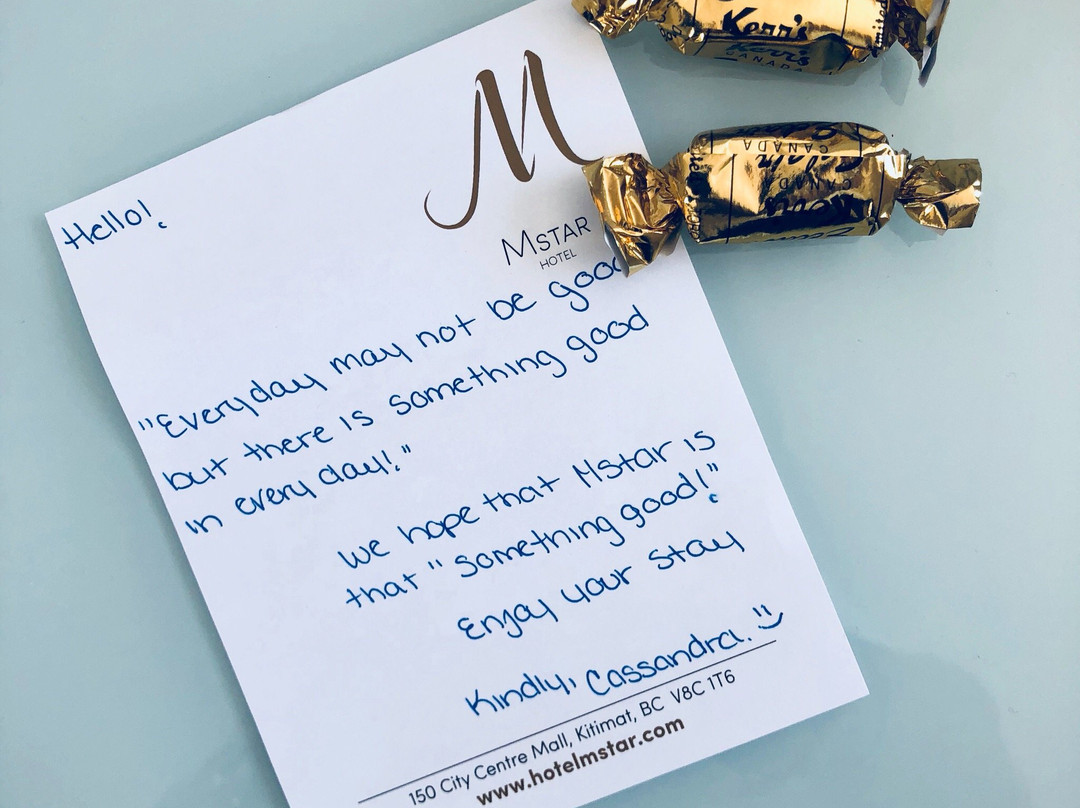 Kerr's
CANADA
CANADA
M
MSTAR
HOTEL
Hello!
"Everyday may not be good
but there is something good
in every day!"
We hope that Mstar is
that "something good!"
Enjoy your stay
Kindly, Cassandra. :)
150 City Centre Mall, Kitimat, BC V8C 1T6
www.hotelmstar.com